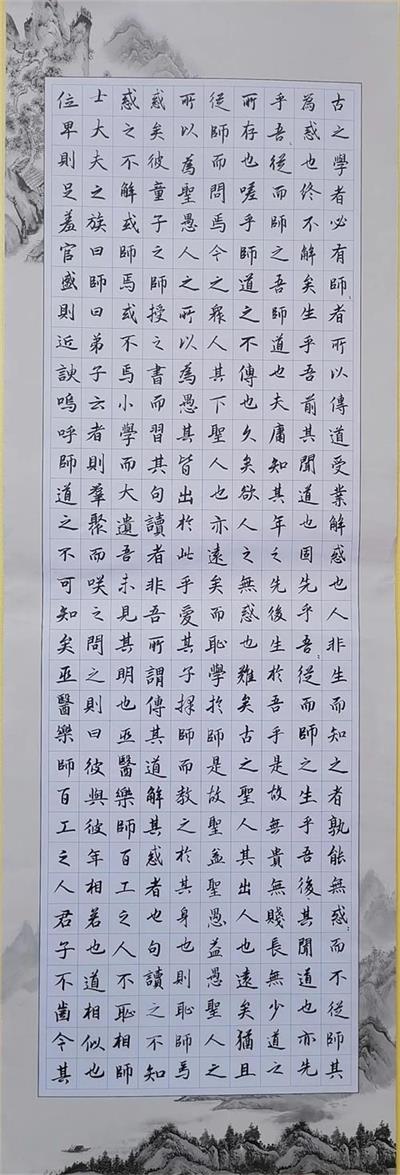 古之學者必有師〻者所以傳道受業解惑也人非生而知之者孰能無惑〻而不從師其
為惑也終不解矣生乎吾前其聞道也固先乎吾〻從而師之生乎吾後〻其聞道也亦先
乎吾〻從而師之吾師道也夫庸知其年之先後生於吾乎是故無貴無賤長無少道之
所存也嗟乎師道之不傳也久矣欲人之無惑也難矣古之聖人其出人也遠矣猶且
從師而問焉今之眾人其下聖人也亦遠矣而恥學於師是故聖益聖愚益愚聖人之
所以為聖愚人之所以為愚其皆出於此乎愛其子擇師而教之於其身也則恥師焉
惑矣彼童子之師授之書而習其句讀者非吾所謂傳其道解其惑者也句讀之不知
惑之不解或師焉或不焉小學而大遺吾未見其明也巫醫樂師百工之人不恥相師
士大夫之族曰師曰弟子云者則羣聚而咲之問之則曰彼與彼年相若也道相似也
位卑則足羞官盛則近諛嗚呼師道之不可知矣巫醫樂師百工之人君子不齒今其